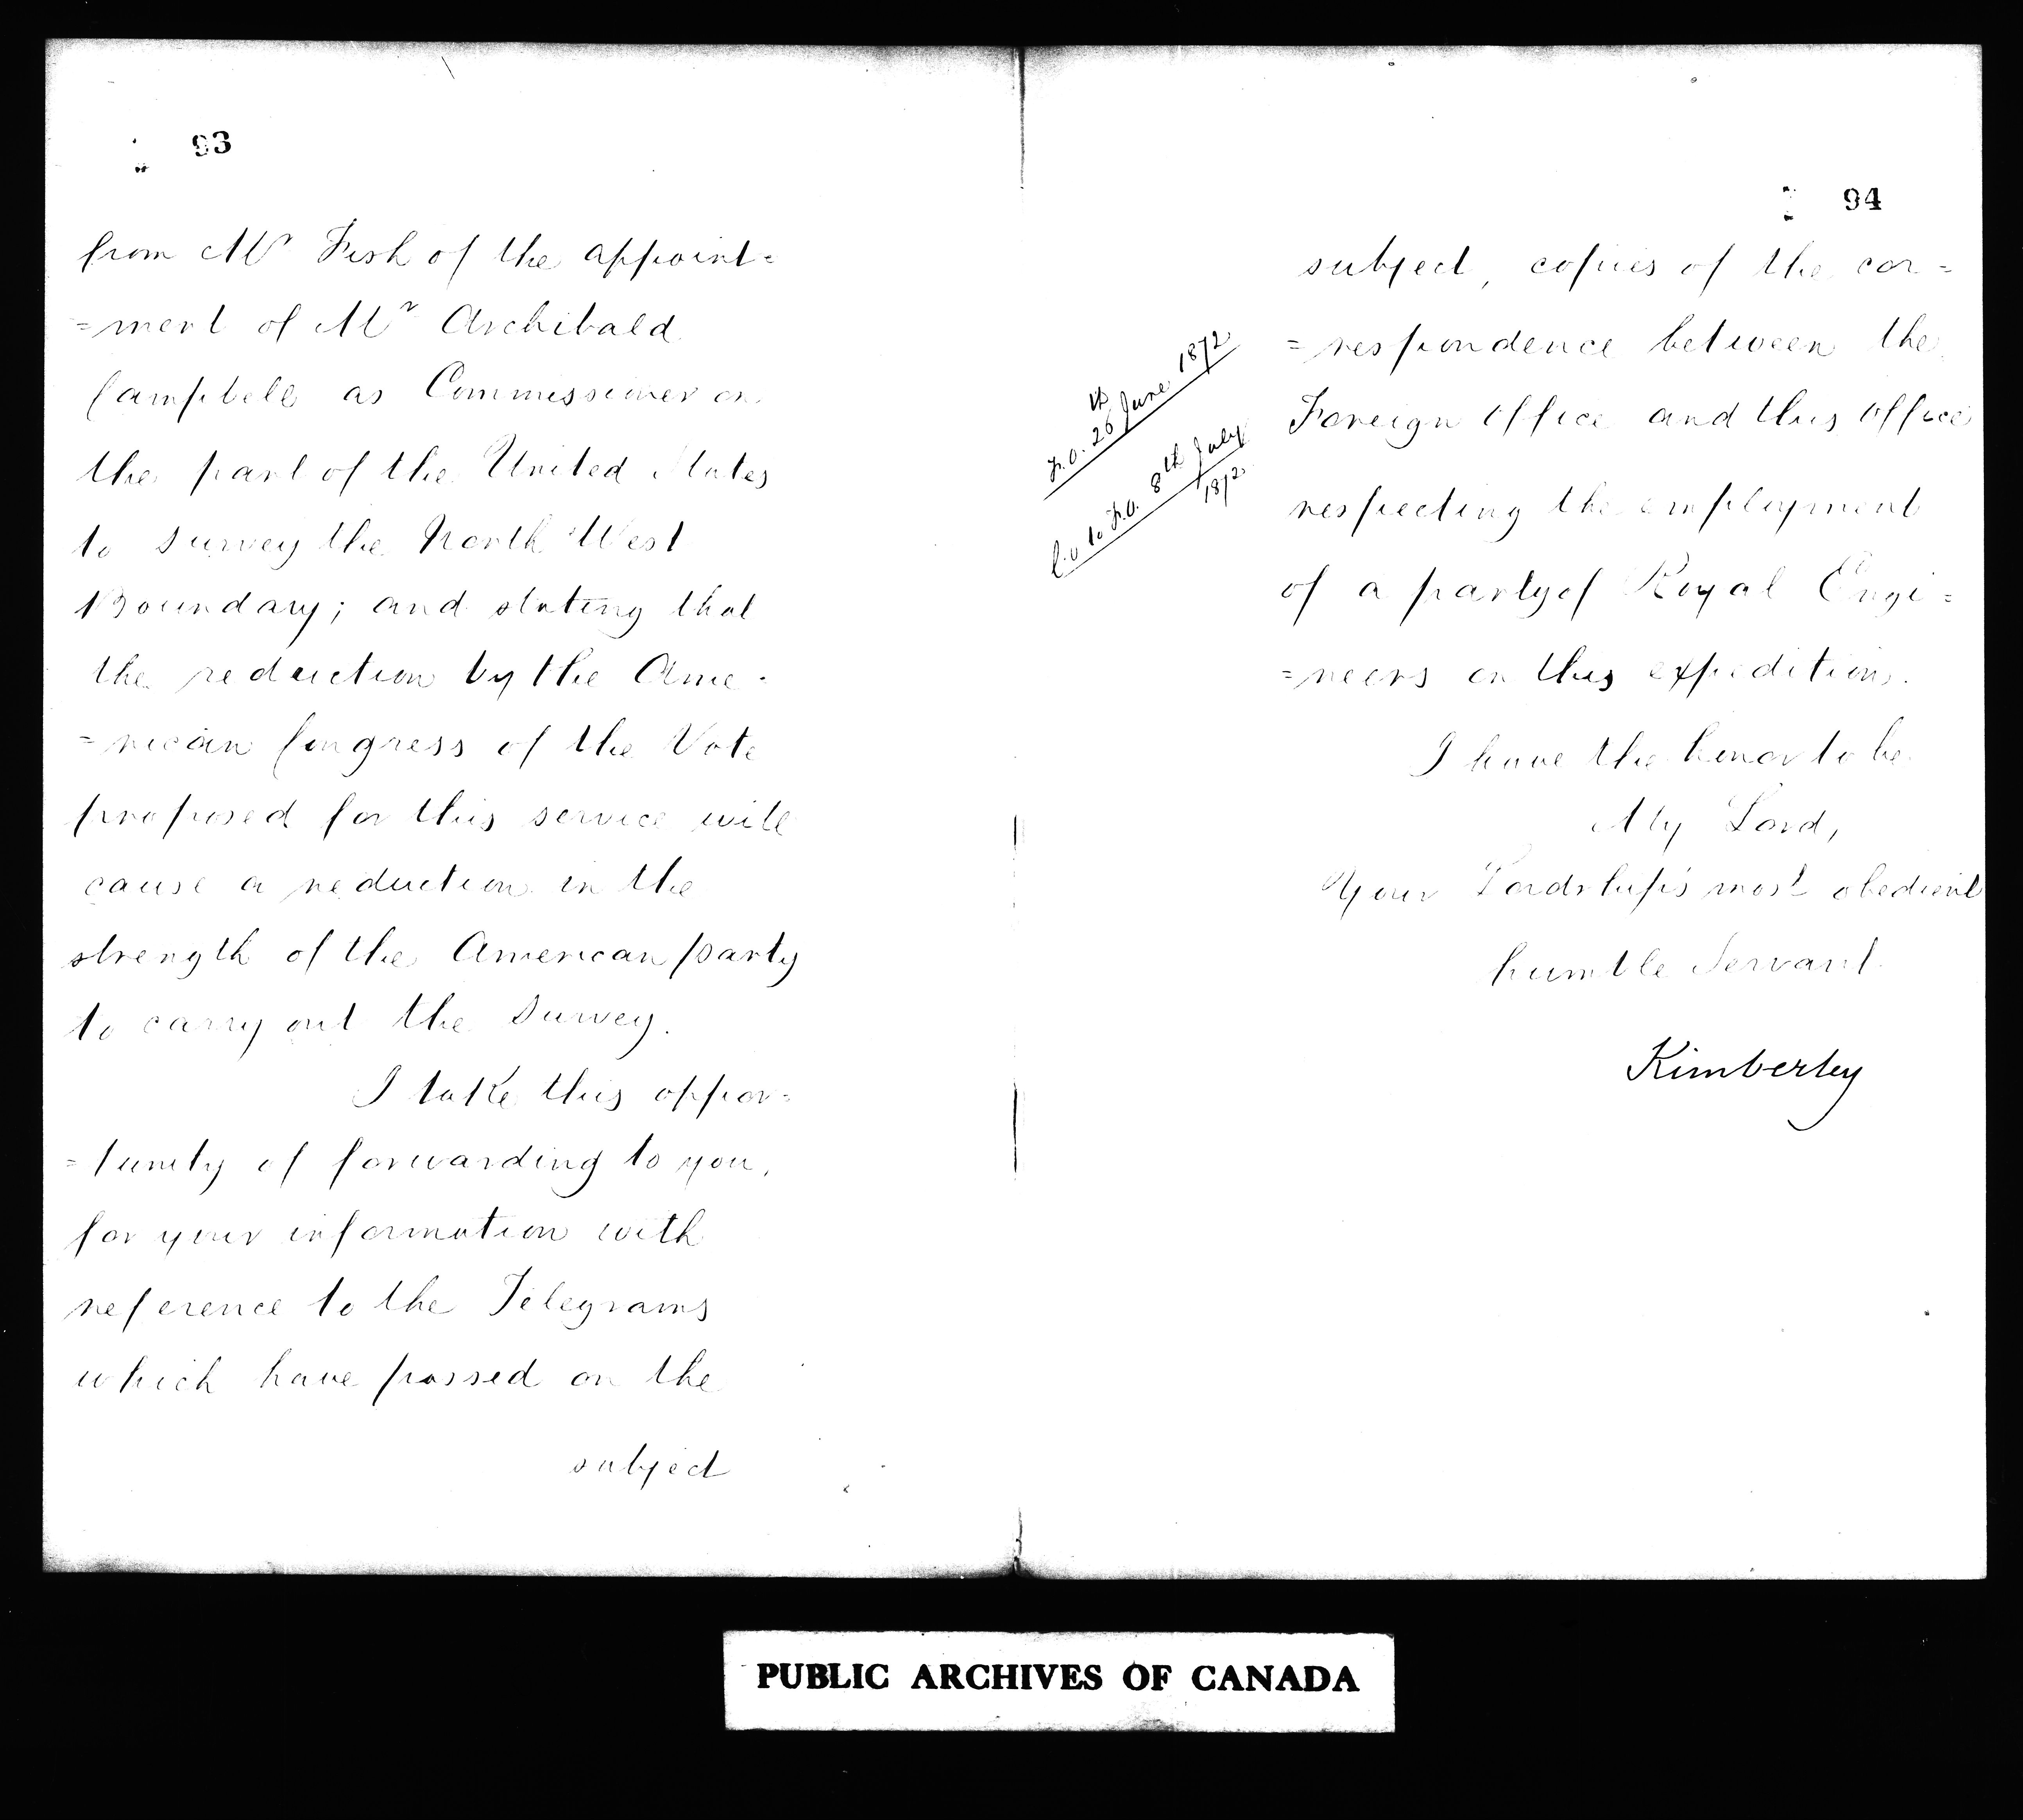 93
from Mr Fish of the appoint=
=ment of Mr Archibald
Campbell as Commissioner on
the part of the United States
to survey the North West
Boundary; and stating that
the reduction by the Ame=
=rican Congress of the Vote
proposed for this service will
cause a reduction in the
strength of the American party
to carry out the survey.
I take this oppor=
=tunity of forwarding to you,
for your information with
reference to the Telegrams
which have passed on the
subject
94
F.O. 26th June 1872
C.O to F.O. 8th July
1872
subject, copies of the cor=
=respondence between the
Foreign Office and this Office
respecting the employment
of a party of Royal Engi=
=neers on this expedition.
I have the honor to be
My Lord,
Your Lordship's most obedient
humble Servant
Kimberley
PUBLIC ARCHIVES OF CANADA